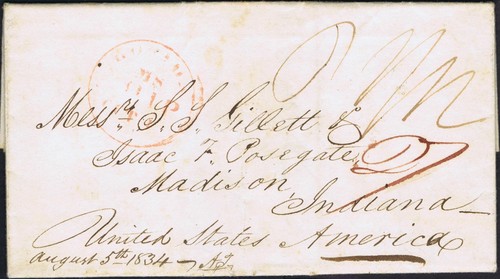 Messrs. S. S. Gillett &
Isaac F. Posegate,
Madison,
Indiana—
United States America
August 5th 1834—